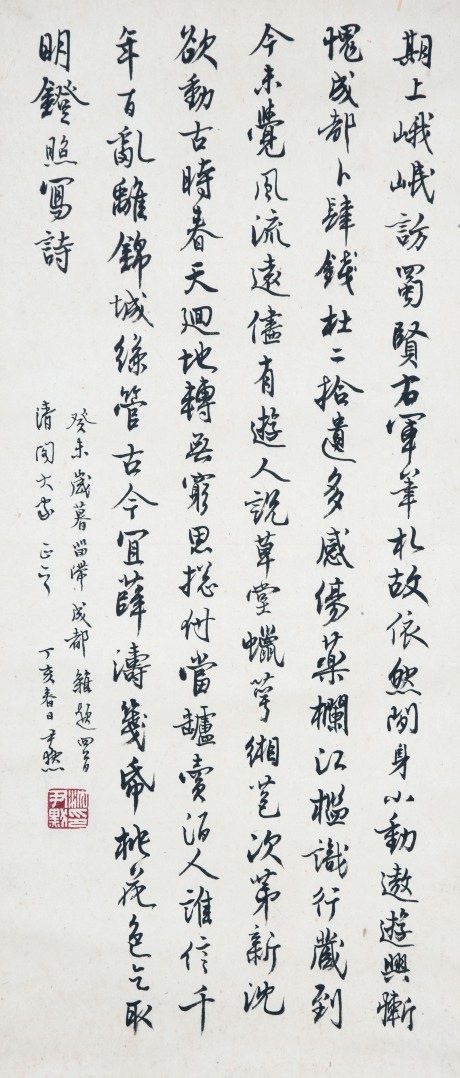 期上峨岷訪蜀賢右軍筆札故依然閒身小動遨遊興慚
愧成都卜肆錢杜二拾遺多感傷藥欄江檻識行藏到
今未覺風流遠儘有遊人說草堂蠟萼緗苞次第新沈
欲動古時春天迴地轉無窮思揔付當壚賣酒人誰信千
年百亂離錦城絲管古今宜薛濤箋帋桃花色乞取
明鐙照寫詩
癸未歲暮留滯成都雜題四首
清閟大家正之
丁亥春日尹默